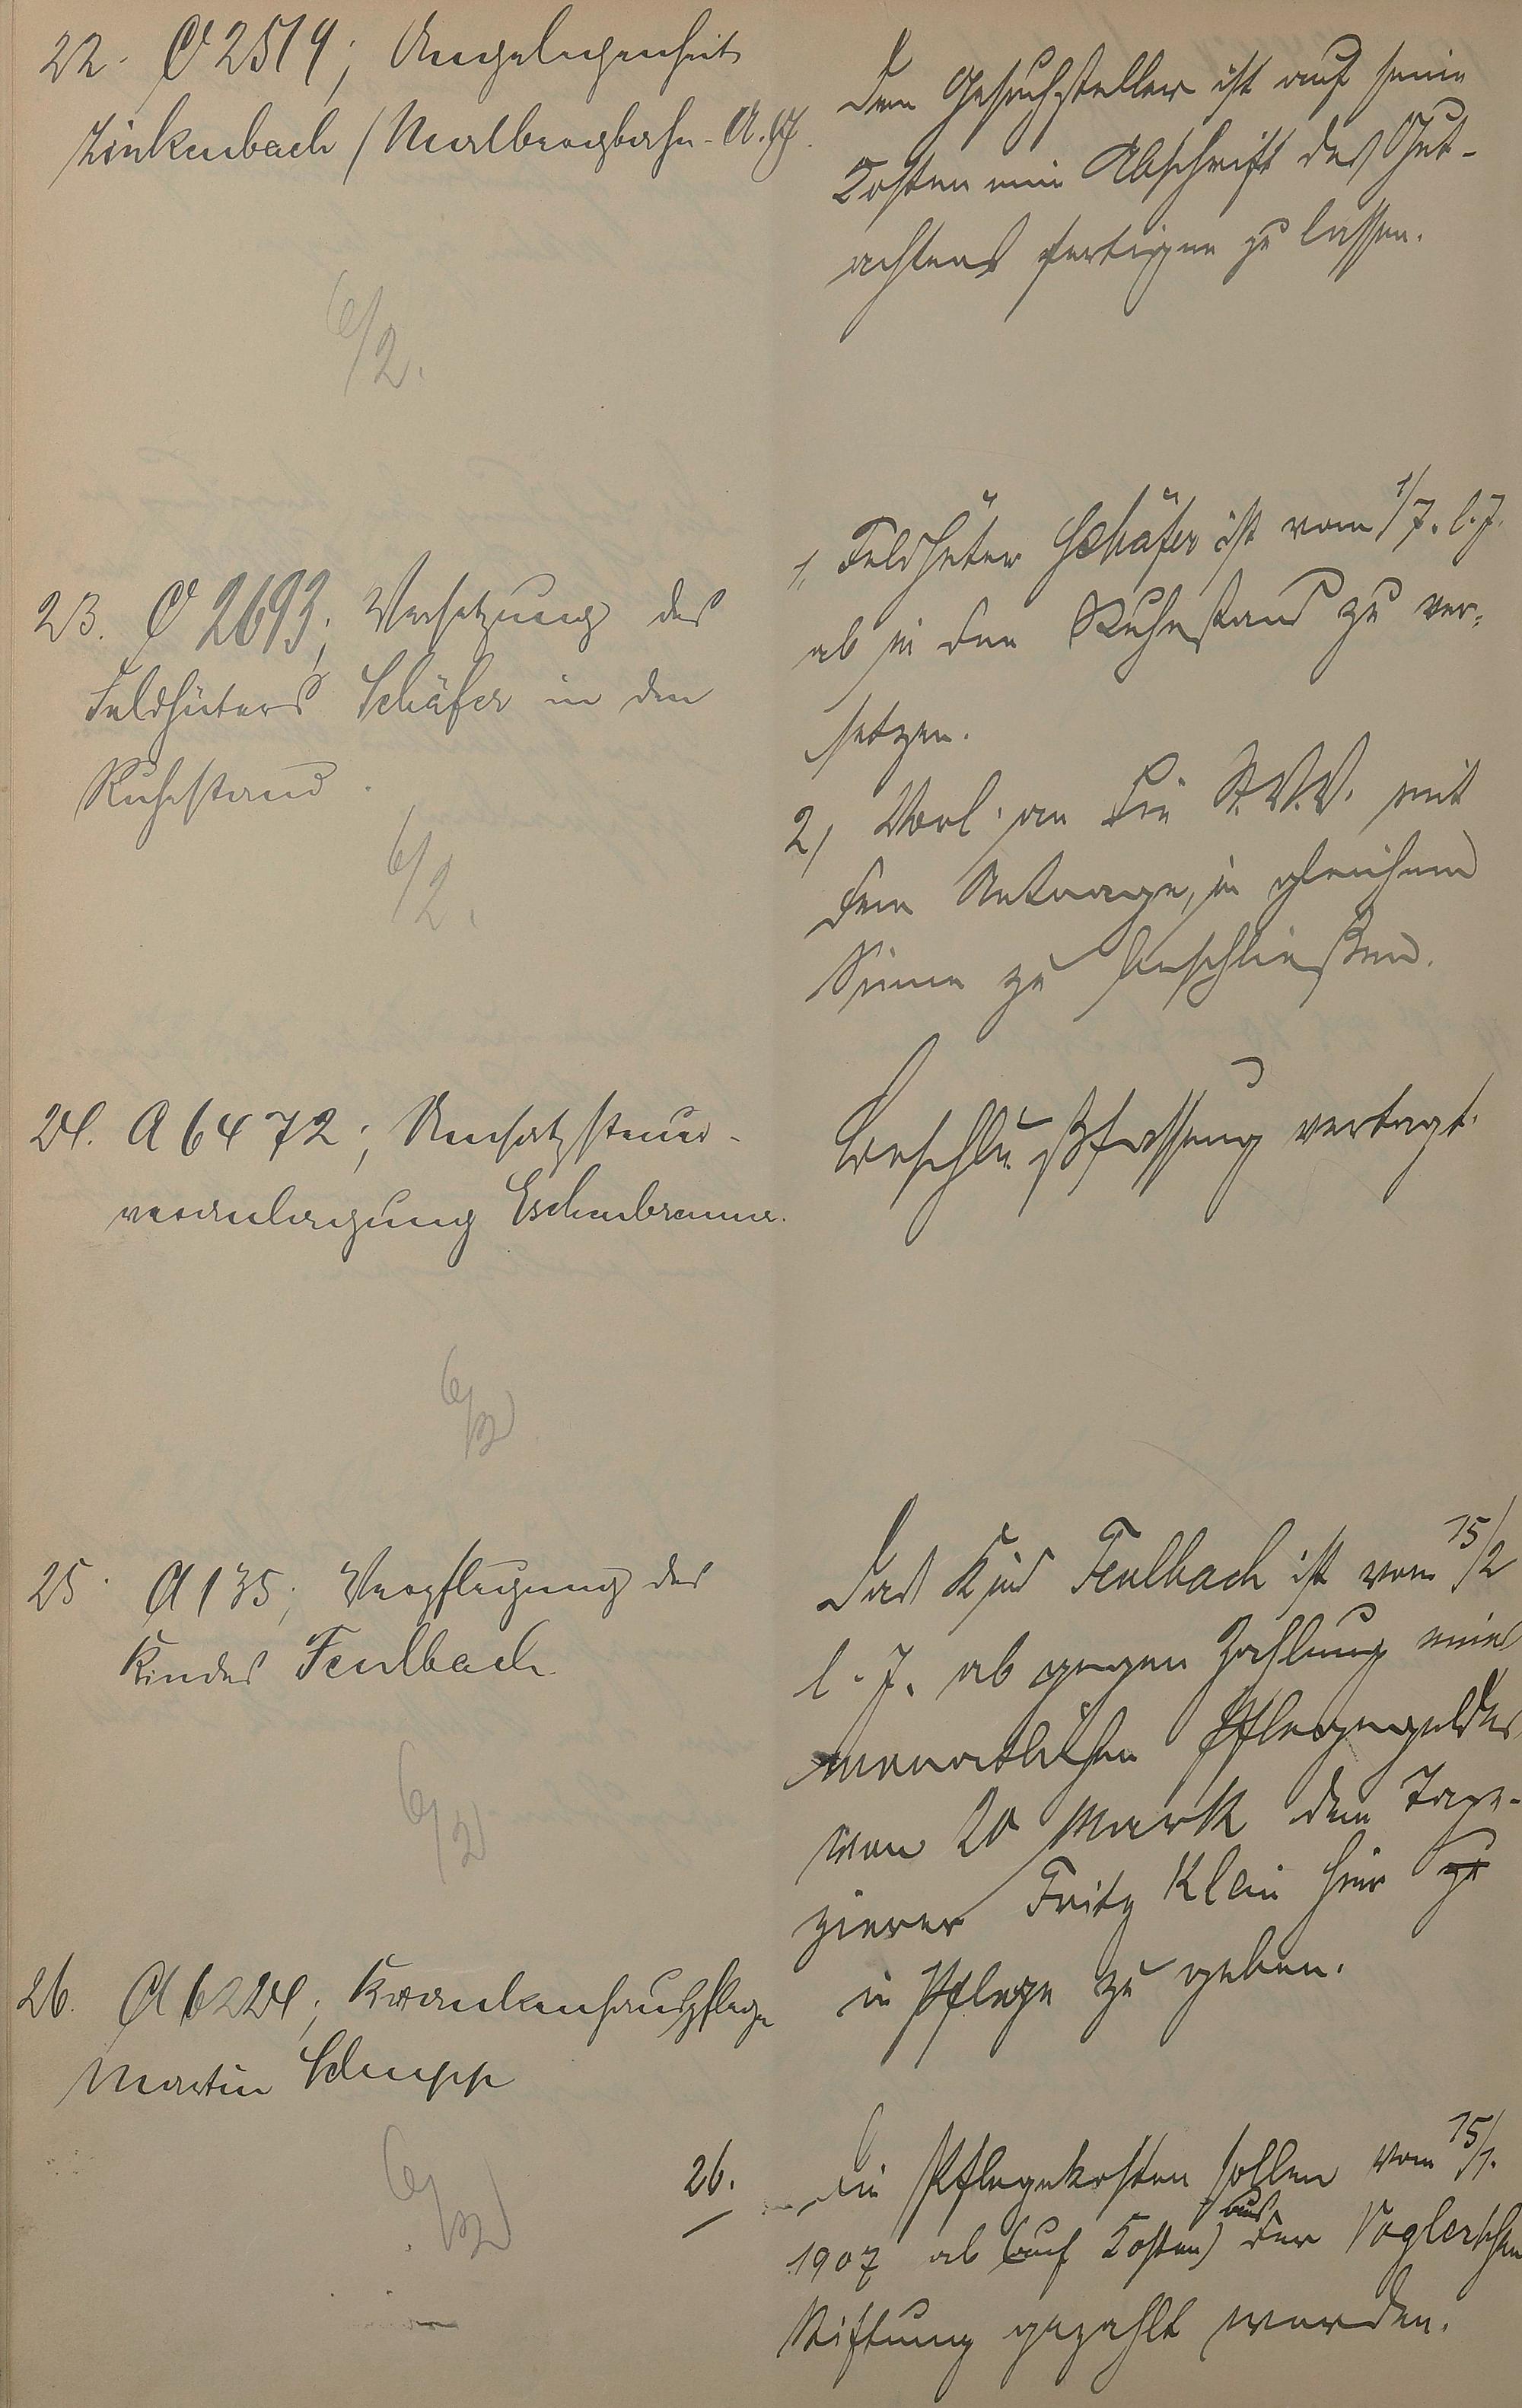 22. C 2519; Angelegenheit
Zinkenbach / Malbergbahn-A.G.
Dem Gesuchsteller ist auf seine
Kosten eine Abschrift des Gut-
achtens fertigen zu lassen.
6/2.
23. C 2693; Versetzung des
Feldhüters Schäfer in den
Ruhestand.
6/2.
1, Feldhüter Schäfer ist vom 1/7. l. J.
ab in den Ruhestand zu ver-
setzen.
2, Vorl. an die St.V.V. mit
dem Antrage, in gleichem
Sinne zu beschließen.
24. A 6472; Umsatzsteuer-
veranlagung Eschenbrenner.
6/2
Beschlußfassung vertagt.
25. A 135; Verpflegung des
Kindes Feulbach.
6/2
Das Kind Feulbach ist vom 15/2
l. J. ab gegen Zahlung eines
monatlichen Pflegegeldes
von 20 Mark dem Tape-
zierer Fritz Klein hier zu
in Pflege zu geben.
26. A 6224; Krankenhauspflege
Martin Schupp
6/2
26. Die Pflegekosten sollen vom 15/1.
1907 ab (auf Kosten) aus der Voglerschen
Stiftung gezahlt werden.